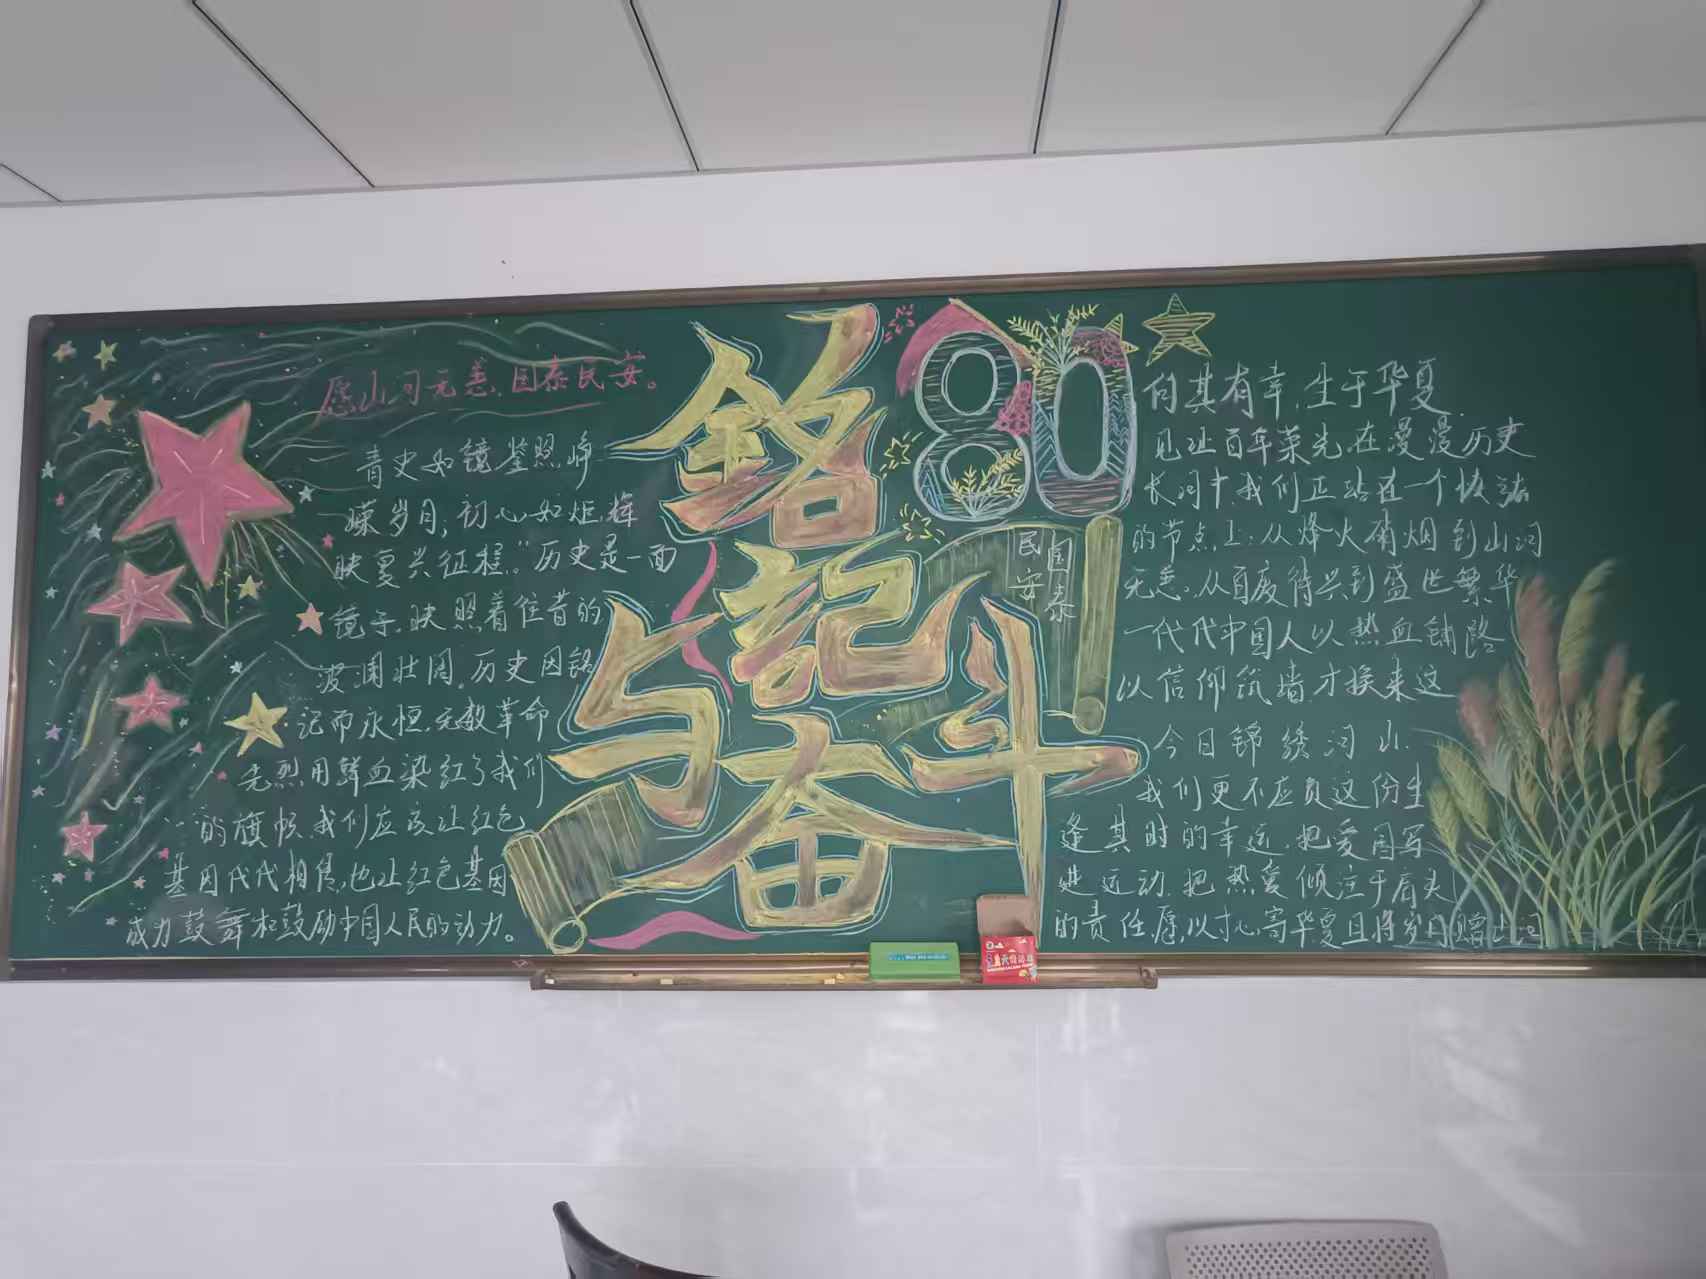 愿山河无恙，国泰民安。
青史如镜鉴照峥
嵘岁月，初心如炬，辉
映复兴征程。"历史是一面
镜子，映照着往昔的
波澜壮阔。历史因铭
记而永恒，无数革命
先烈用鲜血染红了我们
的旗帜，我们应该让红色
基因代代相传，也让红色基因
成为鼓舞和鼓励中国人民的动力。
铭
記
与奋斗
80
国泰
民安
何其有幸，生于华夏，
见证百年荣光，在漫漫历史
长河中，我们正站在一个恢弘
的节点上：从烽火硝烟到山河
无恙，从百废待兴到盛世繁华
一代代中国人以热血铺路
以信仰筑墙，才换来这
今日锦绣河山。
我们更不应负这份生
逢其时的幸运，把爱国写
进远动，把热爱倾注于肩头
的责任，愿，以寸心寄华夏，且将岁月赠山河